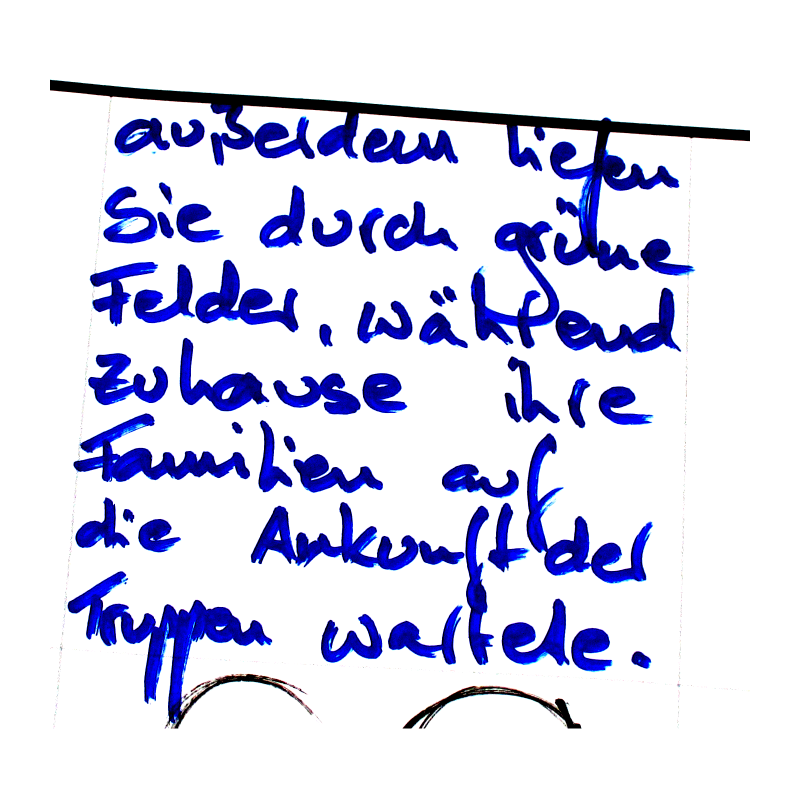 außerdem liefen
Sie durch grüne
Felder, während
zuhause ihre
Familien auf
die Ankunft der
Truppen wartete.